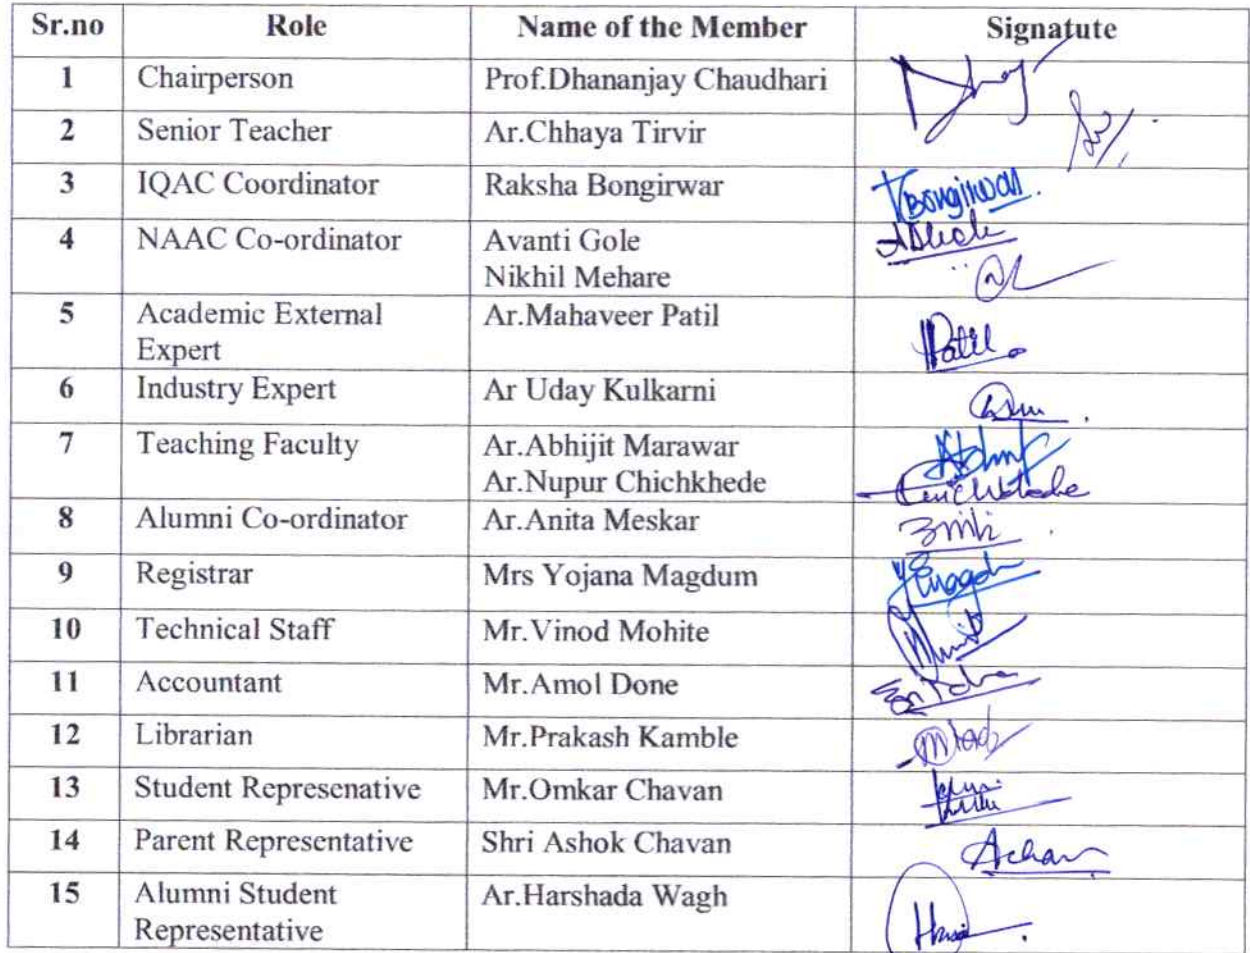 Sr.no Role Name of the Member Signatute
1 Chairperson Prof.Dhananjay Chaudhari
2 Senior Teacher Ar.Chhaya Tirvir
3 IQAC Coordinator Raksha Bongirwar Bongirwar.
4 NAAC Co-ordinator Avanti Gole
Nikhil Mehare
5 Academic External Ar.Mahaveer Patil Patil
Expert
6 Industry Expert Ar Uday Kulkarni
7 Teaching Faculty Ar.Abhijit Marawar
Ar.Nupur Chichkhede
8 Alumni Co-ordinator Ar.Anita Meskar
9 Registrar Mrs Yojana Magdum
10 Technical Staff Mr.Vinod Mohite
11 Accountant Mr.Amol Done
12 Librarian Mr.Prakash Kamble
13 Student Represenative Mr.Omkar Chavan
14 Parent Representative Shri Ashok Chavan
15 Alumni Student Ar.Harshada Wagh
Representative